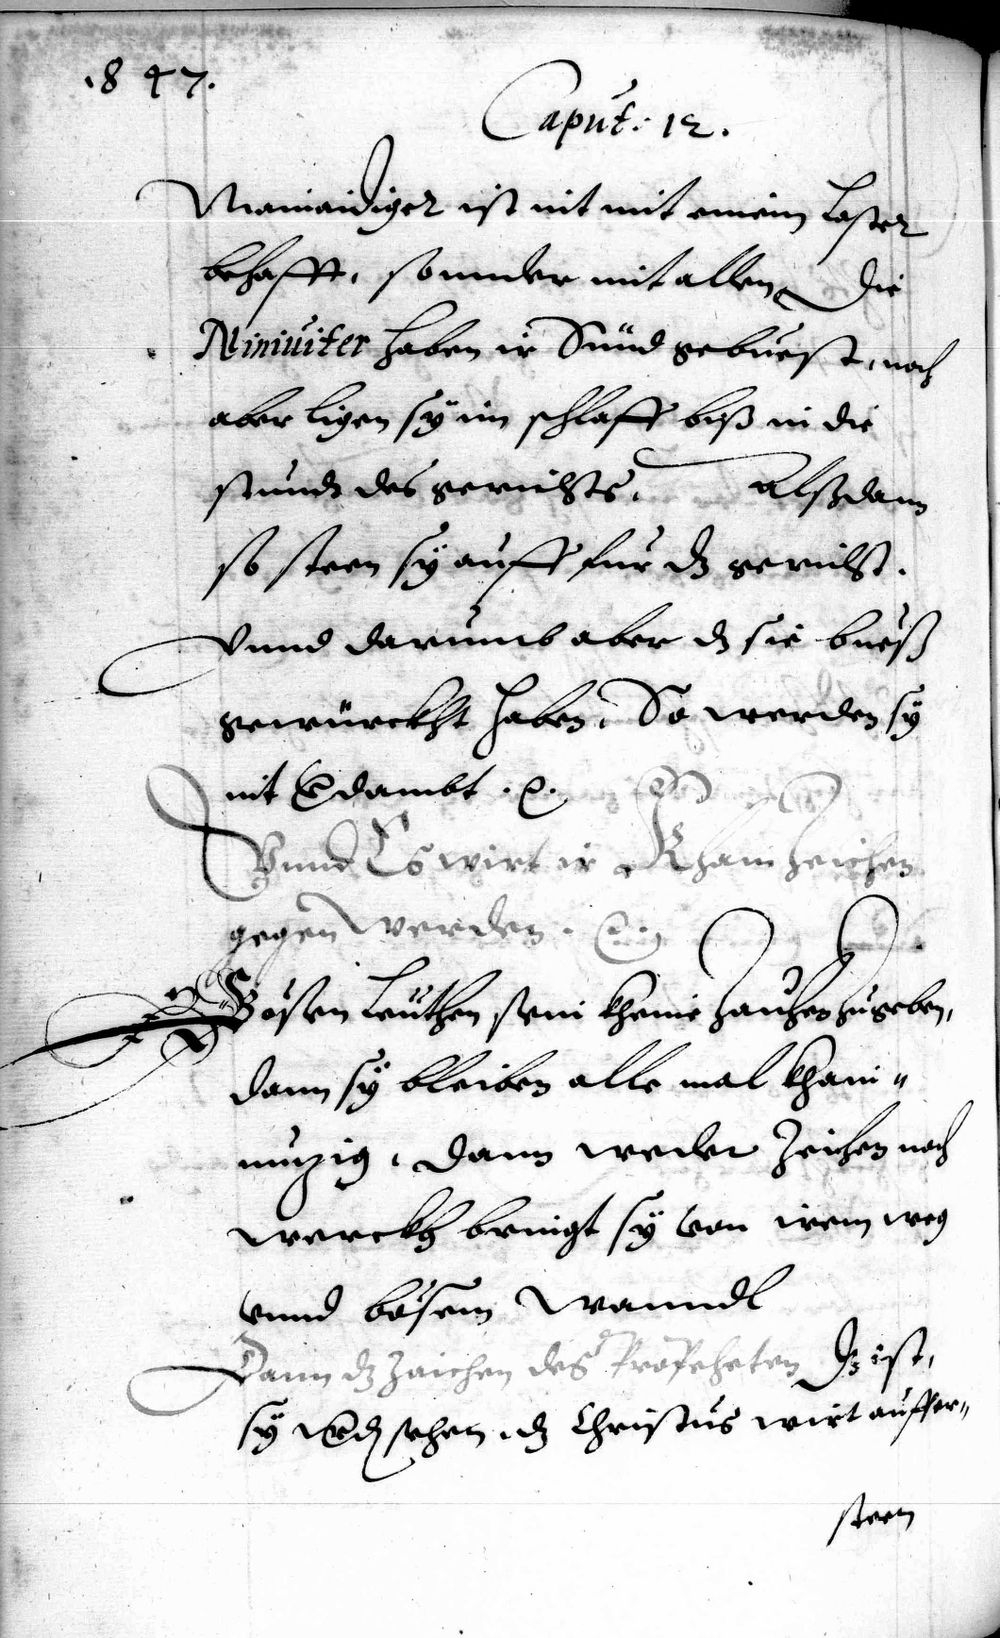 .847.
Caput: 12.
Mainaidiger ist nit mit einem Laster
behafft, sonnder mit allen, Die
Niniuiter haben ir Sünd gebuest, noch
aber ligen sÿ im schlaff biß in die
stundt des gerichts. Alßdann
so steen sÿ auff fur dz gericht.
Vnnd darumb aber dz sie bueß
gewürckht haben, So werden sÿ
nit verdambt .
Vnnd Es wirt ir Khain zeichen
gegen werden.
Bösen Leuthen sein kheine zaichen zugeben,
dann sÿ bleiben alle mal khain"
nuzig, dann weder zeichen noch
werckh bringt sÿ von irem weg
vnnd bösem wanndl
Dann dz zaichen des Propheten Dz ist,
sÿ werden sehen, dz Christus wirt auffer"
steen